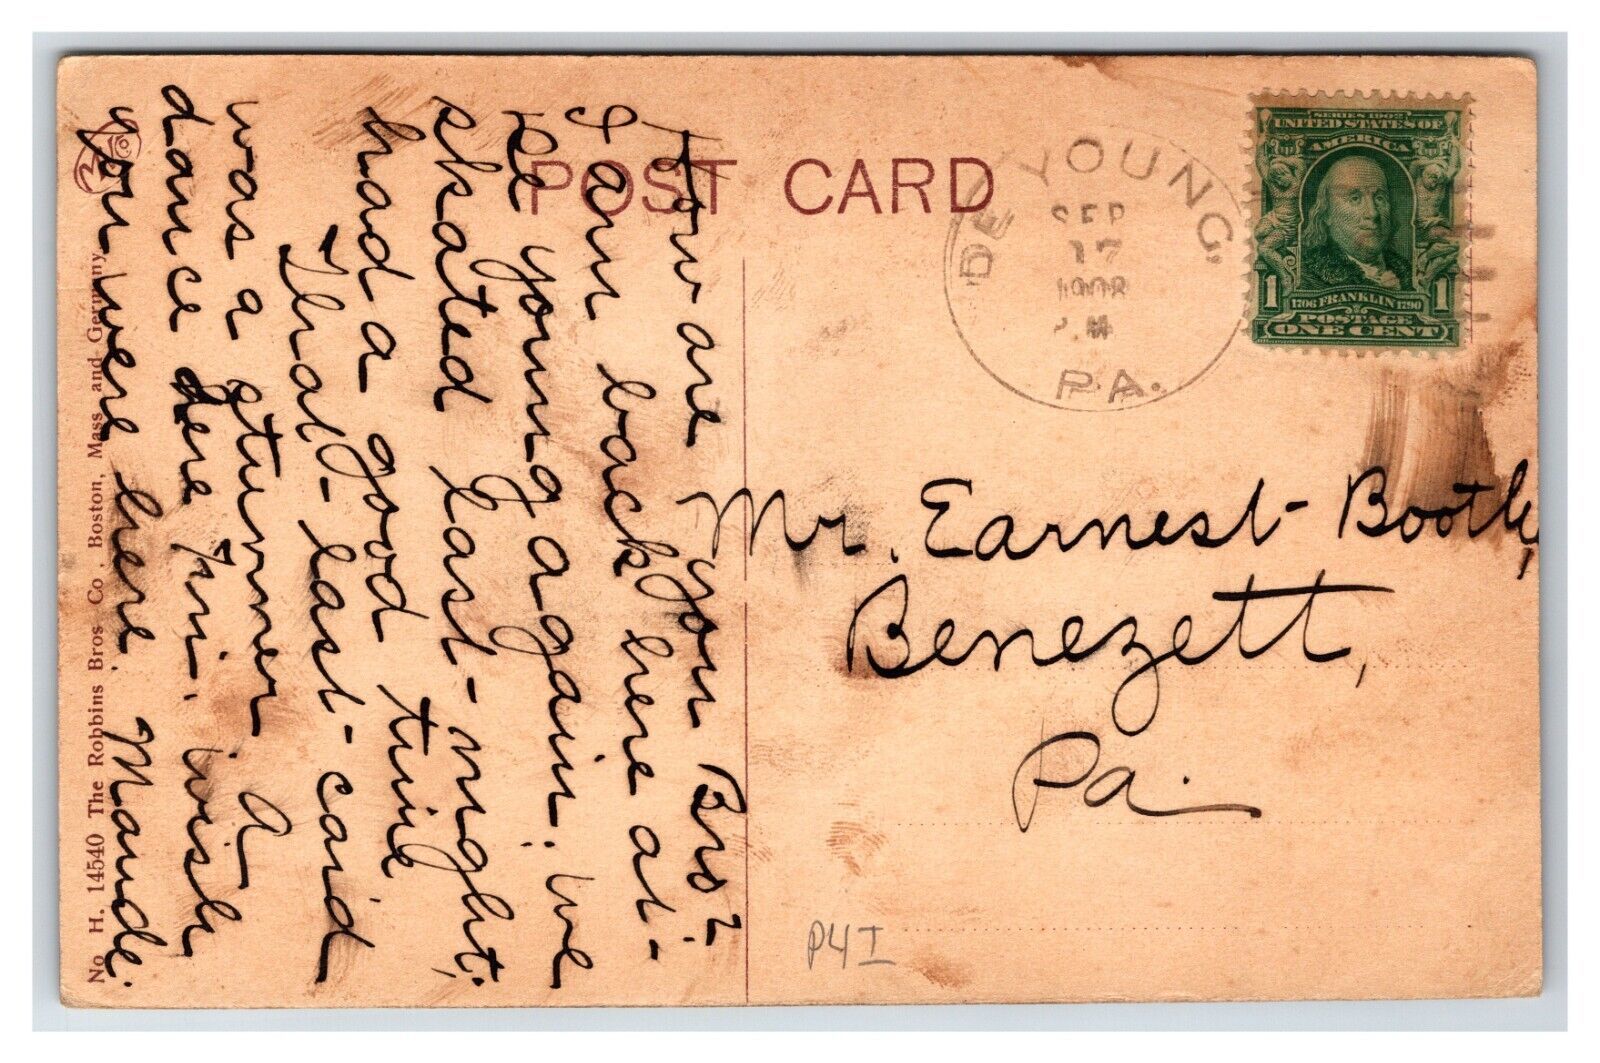 POST CARD
DE YOUNG,
SEP
17
1908
M
PA.
SERIES 1902
UNITED STATES OF
AMERICA
1706 FRANKLIN 1790
1 1
POSTAGE
ONE CENT
How are you Bro?
I am back here at
De young again. We
skated last night,
had a good time
That last card
was a stunner A
dance here Fri. wish
you were here. Maude.
Mr. Earnest Bootle,
Benezett,
Pa.
P4I
No H. 14540 The Robbins Bros Co., Boston, Mass and Germany